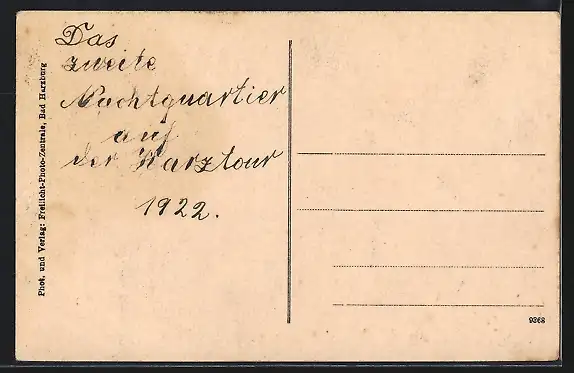 Das
zweite
Nachtquartier
auf
der Harztour
1922.
Phot. und Verlag: Freilicht-Photo-Zentrale, Bad Harzburg
9368